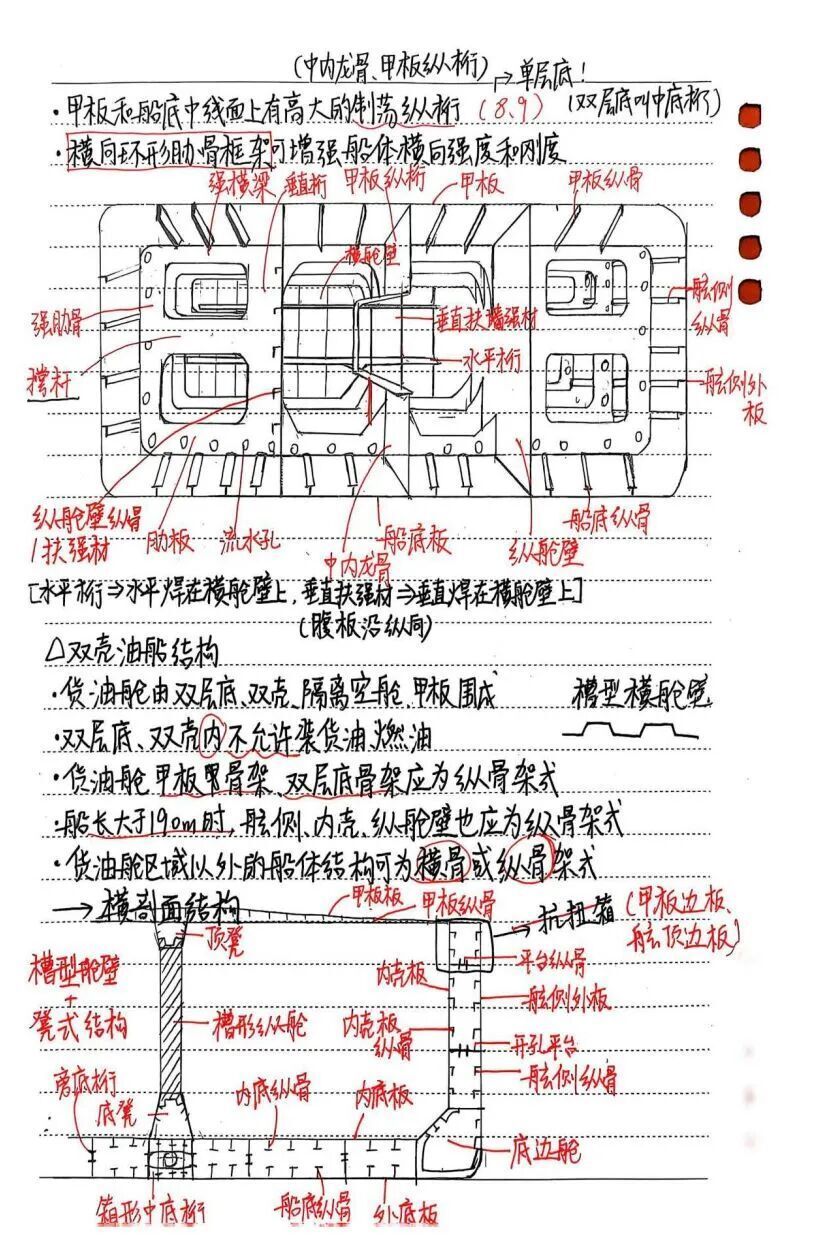 (中内龙骨、甲板纵桁) → 单层底！
·甲板和船底中线面上有高大的制荡纵桁 (8、9) (双层底叫中底桁)
·横向环形肋骨框架可增强船体横向强度和刚度
强横梁 垂直桁 甲板纵桁 甲板 甲板纵骨
横舱壁
舷侧纵骨
强肋骨
垂直扶强材
水平桁
撑杆
舷侧外板
纵舱壁纵骨/扶强材
肋板 流水孔 中内龙骨 船底板 纵舱壁 船底纵骨
[水平桁⇒水平焊在横舱壁上，垂直扶强材⇒垂直焊在横舱壁上]
(腹板沿纵向)
△双壳油船结构
·货油舱由双层底、双壳、隔离空舱、甲板围成 槽型横舱壁
·双层底、双壳内不允许装货油、燃油
·货油舱甲板骨架、双层底骨架应为纵骨架式
·船长大于190m时，舷侧、内壳、纵舱壁也应为纵骨架式
·货油舱区域以外的船体结构可为横骨或纵骨架式
→横剖面结构 甲板板 甲板纵骨 →抗扭箱 (甲板边板、舷顶边板)
顶凳
平台纵骨
槽型舱壁
+
凳式结构
内壳板
舷侧外板
槽形纵舱
内壳板纵骨
开孔平台
舷侧纵骨
旁底桁
底凳
内底纵骨 内底板
底边舱
箱形中底桁 船底纵骨 外底板